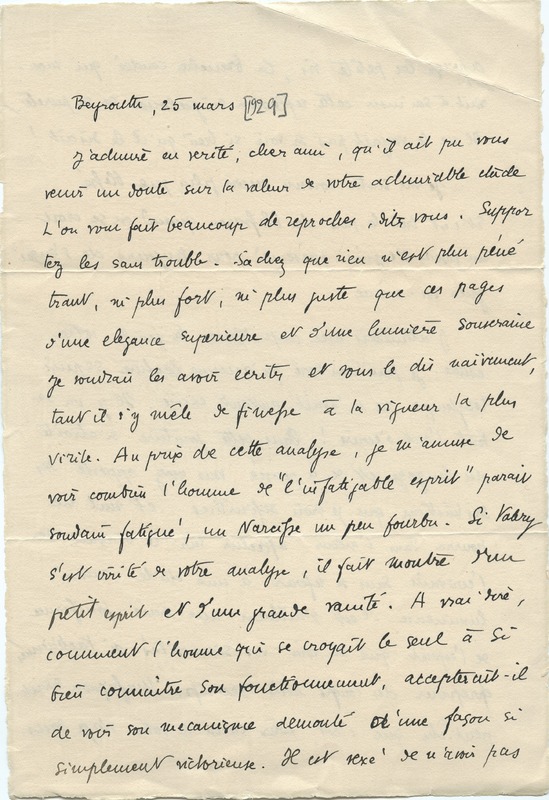 Beyrouth, 25 mars [1929]
J'admire en verité, cher ami, qu'il ait pu vous
venir un doute sur la valeur de votre admirable etude
L'on vous fait beaucoup de reproches, dites vous. Suppor
tez les sans trouble. Sachez que rien n'est plus péné
trant, ni plus fort, ni plus juste que ces pages
d'une elegance superieure et d'une lumière souveraine
je voudrais les avoir ecrites et vous le dis naïvement,
tant il s'y mêle de finesse à la vigueur la plus
virile. Au prix de cette analyse, je m'amuse de
voir combien l'homme de "l'infatigable esprit" parait
soudain fatigué, un Narcisse un peu fourbu. Si Valéry
s'est irrité de votre analyse, il fait montre d'un
petit esprit et d'une grande vanité. A vrai dire,
comment l'homme qui se croyait le seul à si
bien connaître son fonctionnement, accepterait-il
de voir son mecanisme demonté d'une façon si
simplement victorieuse. Il est vexé de n'avoir pas